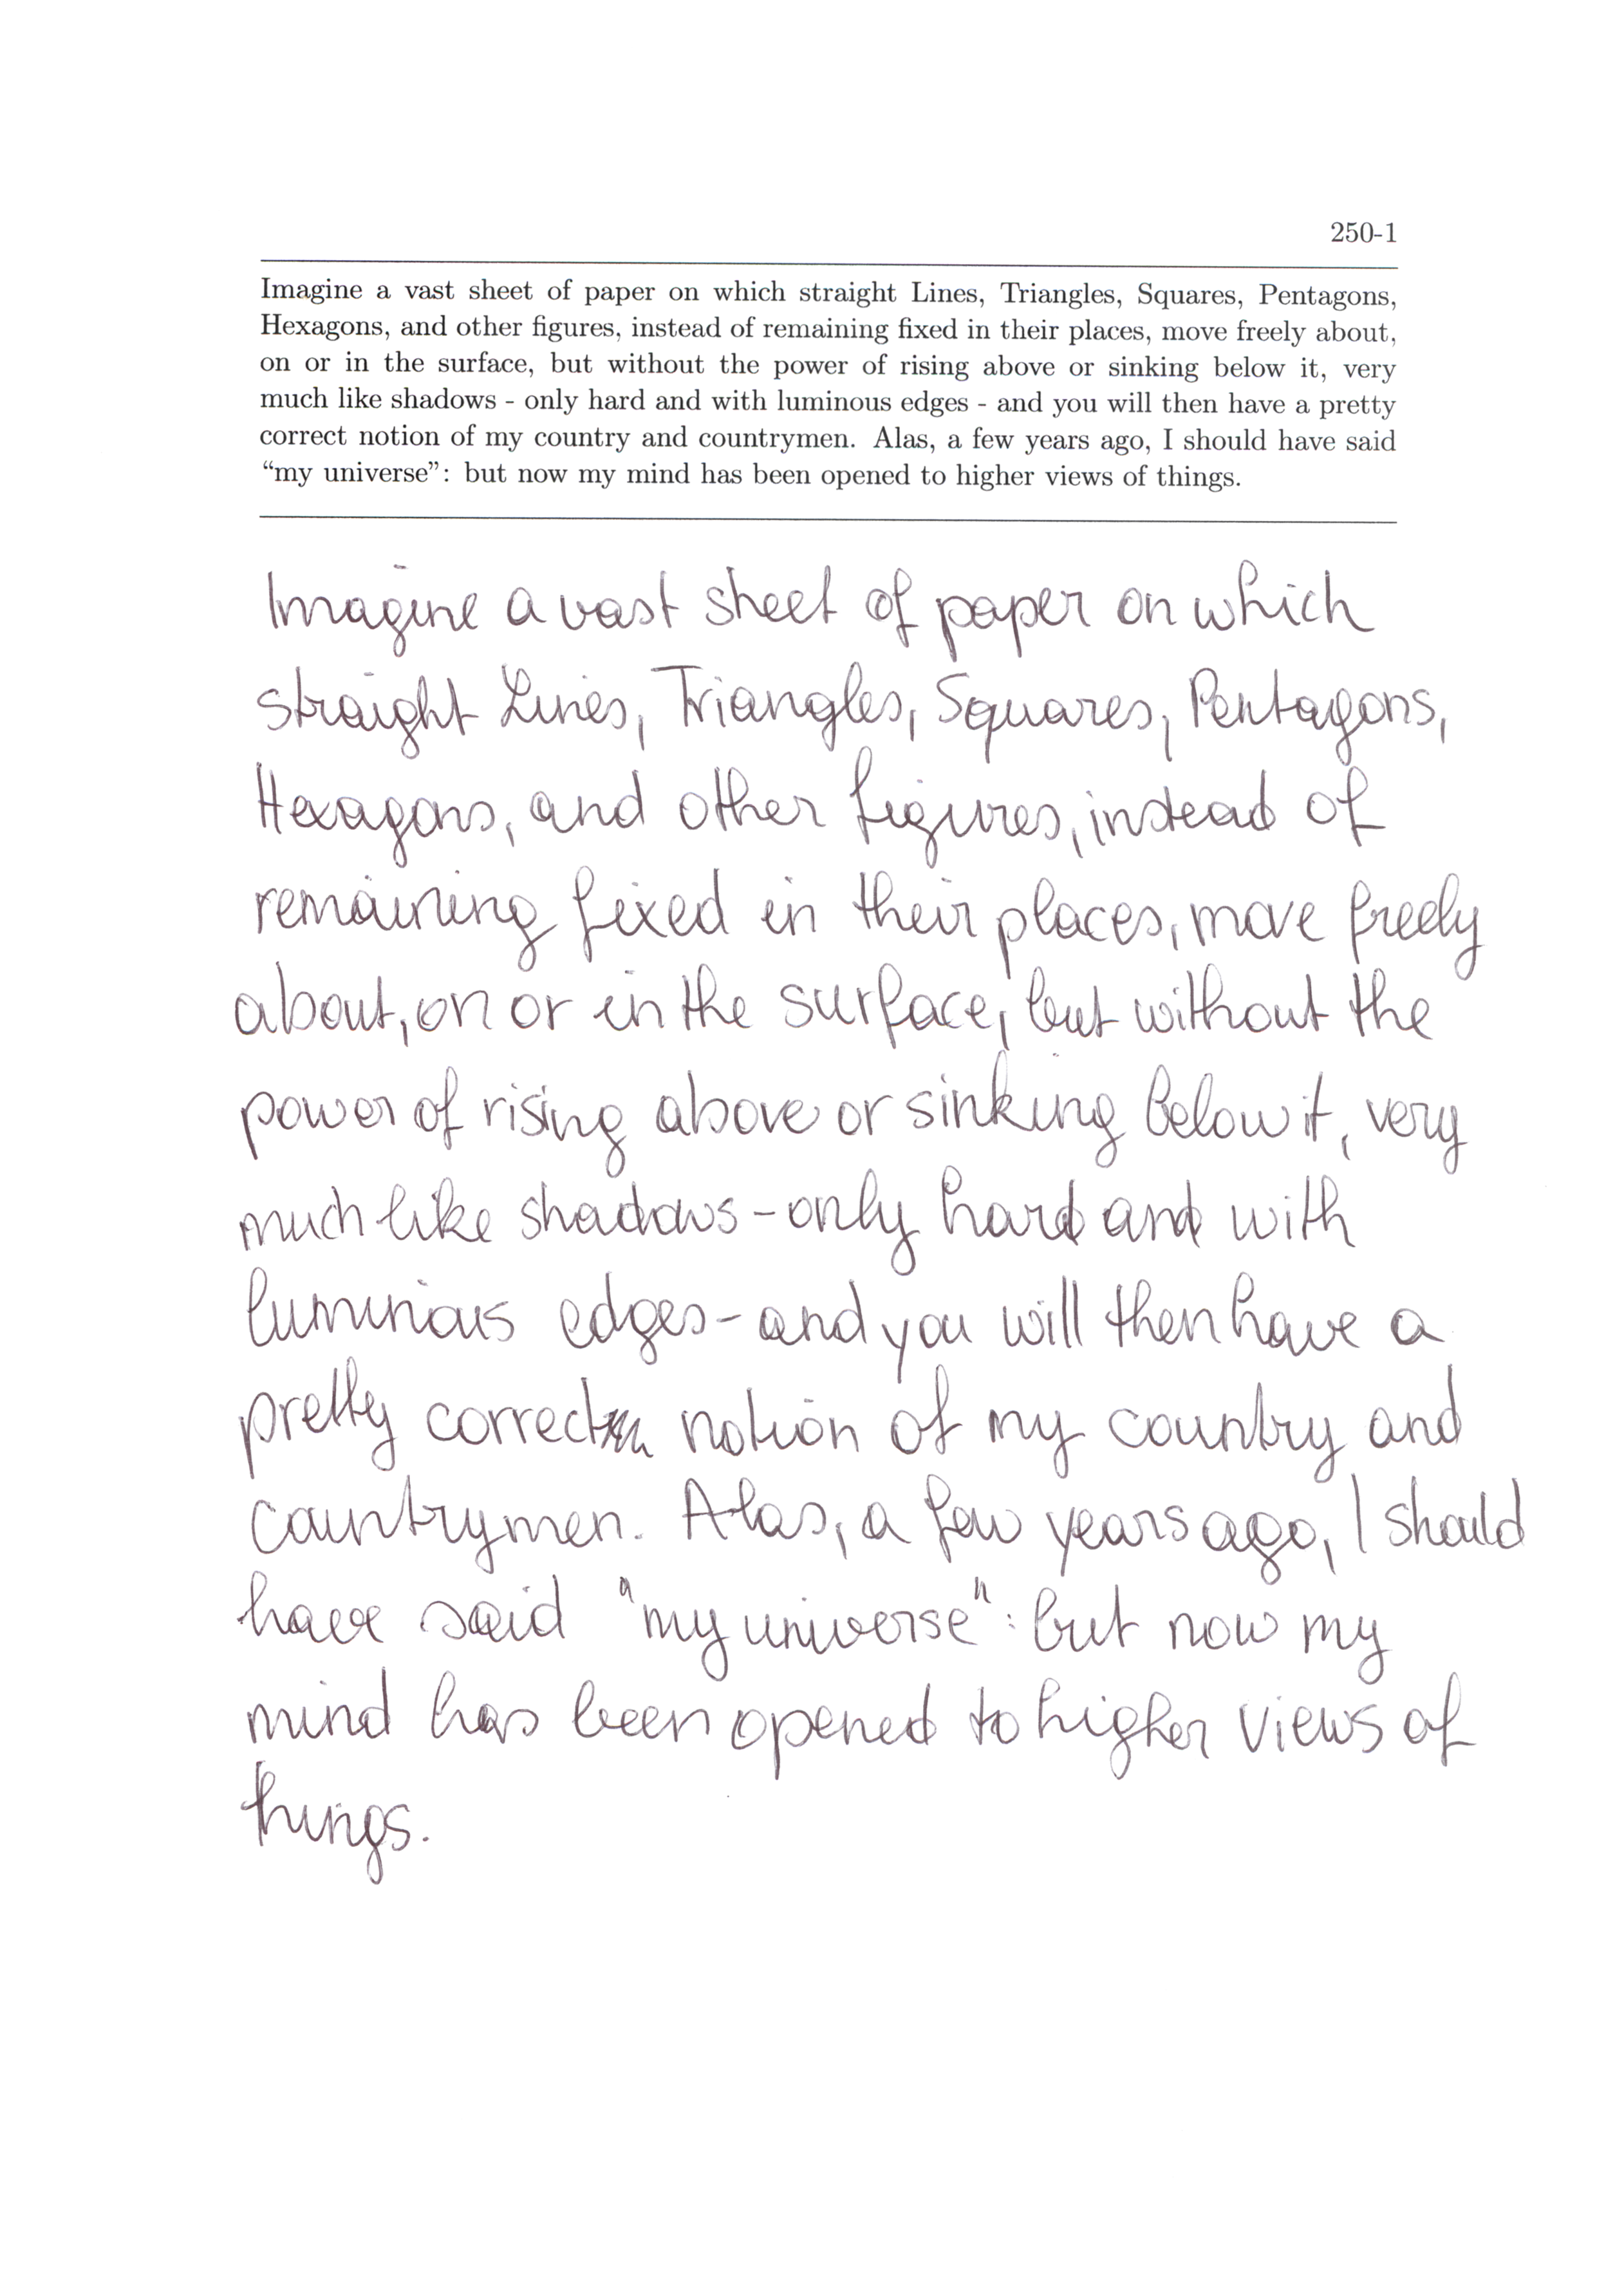 250-1
Imagine a vast sheet of paper on which straight Lines, Triangles, Squares, Pentagons,
Hexagons, and other figures, instead of remaining fixed in their places, move freely about,
on or in the surface, but without the power of rising above or sinking below it, very
much like shadows - only hard and with luminous edges - and you will then have a pretty
correct notion of my country and countrymen. Alas, a few years ago, I should have said
“my universe”: but now my mind has been opened to higher views of things.
Imagine a vast sheet of paper on which
straight Lines, Triangles, Squares, Pentagons,
Hexagons, and other figures, instead of
remaining fixed in their places, move freely
about, on or in the surface, but without the
power of rising above or sinking below it, very
much like shadows - only hard and with
luminious edges - and you will then have a
pretty correct notion of my country and
countrymen. Alas, a few years ago, I should
have said "my universe": but now my
mind has been opened to higher views of
things.